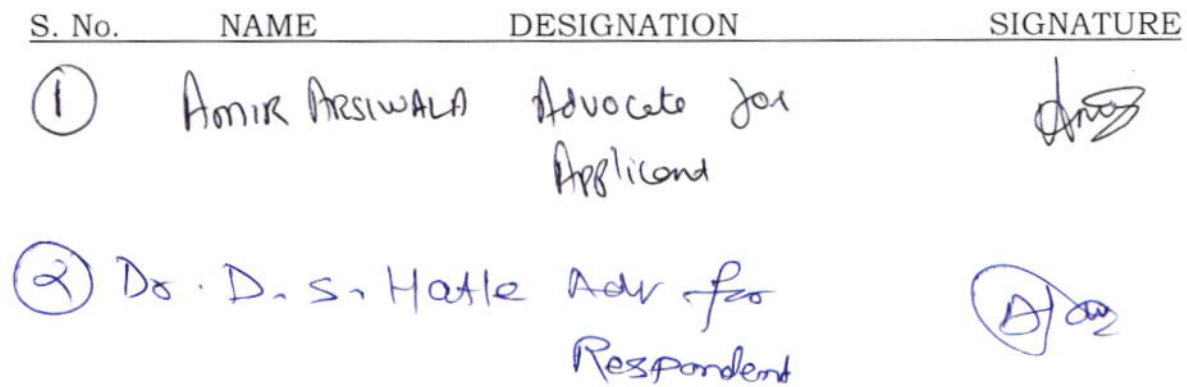 S. No. NAME DESIGNATION SIGNATURE
1 AMIR ARSIWALA Advocate for
Applicant
2 Dr. D. S. Hatle Adv for
Respondent